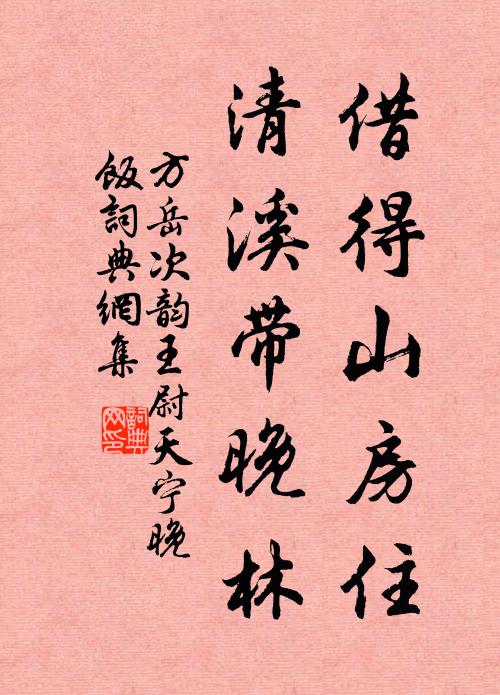 借得山房住
清溪带晚林
方岳次韵王尉天宁晚
饭詞典網集
詞典
网印